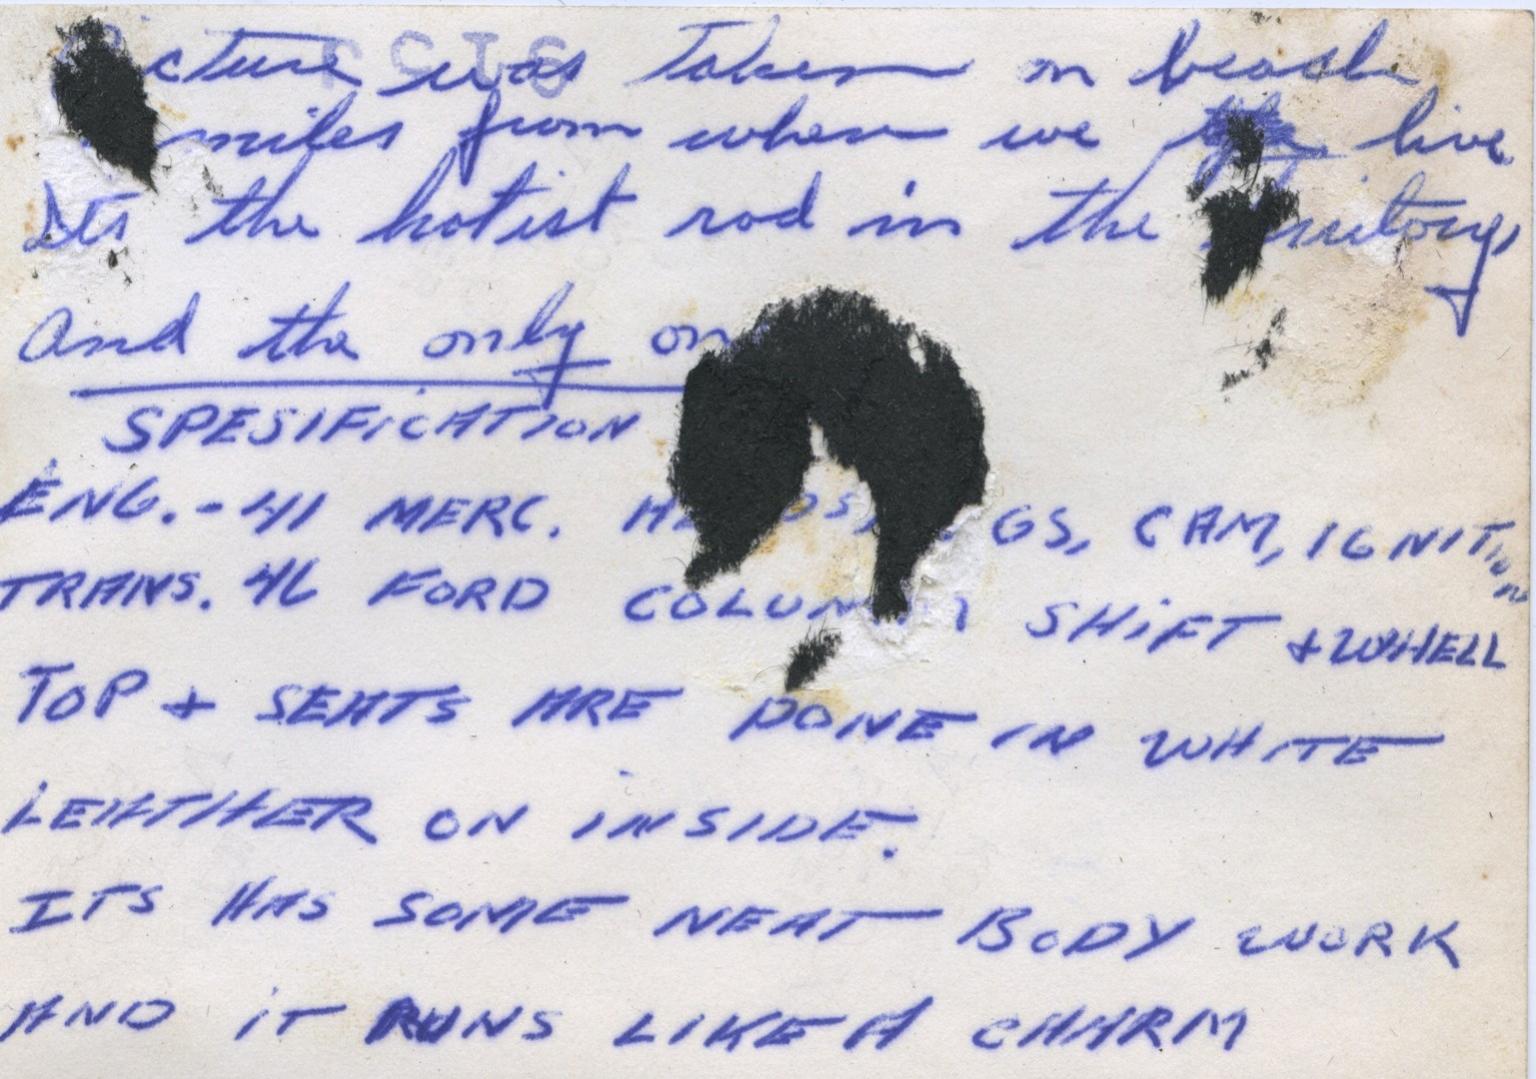 icture was taken on beach
miles from where we live
Its the hotist rod in the
And the only
SPESIFICATION
ENG.-41 MERC. GS, CAM, IGNITION
TRANS. 46 FORD COLUMN SHIFT + WHELL
TOP + SEATS ARE DONE IN WHITE
LEATHER ON INSIDE.
ITS HAS SOME NEAT BODY WORK
AND iT RUNS LIKE A CHARM